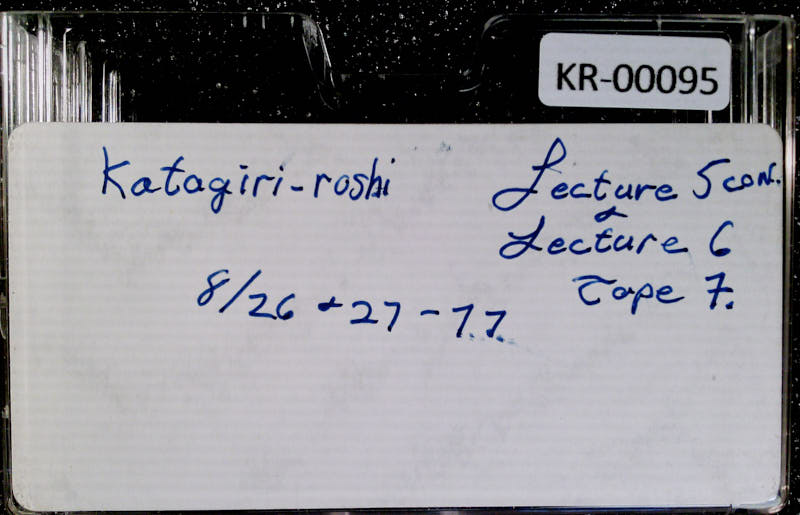 KR-00095
Katagiri-roshi
8/26 + 27 - 77
Lecture 5 con.
&
Lecture 6
Tape 7.